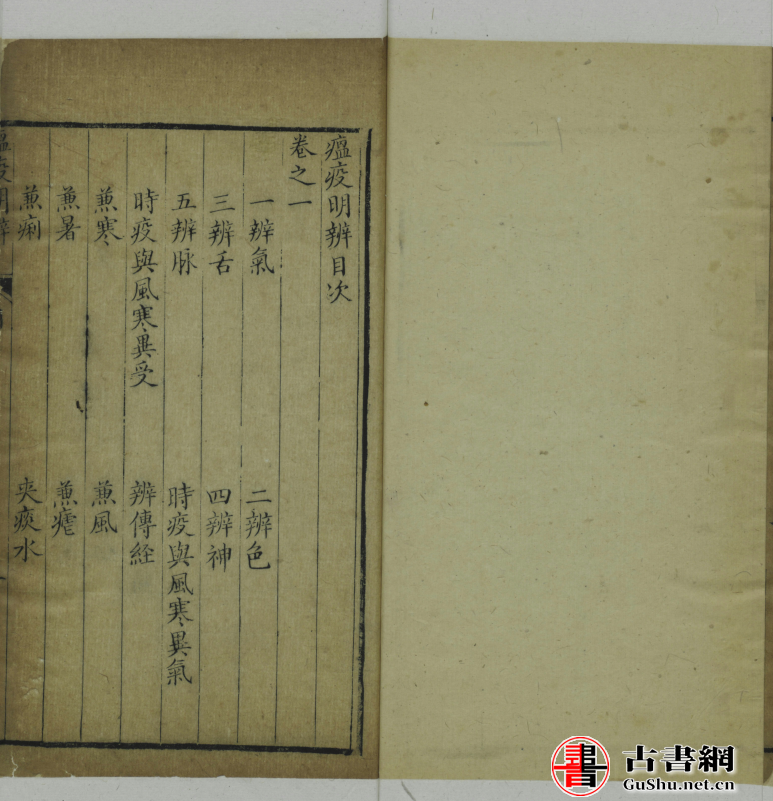 瘟疫明辨目次
卷之一
一辨氣　二辨色
三辨舌　四辨神
五辨脉　時疫與風寒異氣
時疫與風寒異受　辨傳経
兼寒　兼風
兼暑　兼瘧
兼痢　夾痰水
瘟疫明辨
古書網
GuShu.net.cn